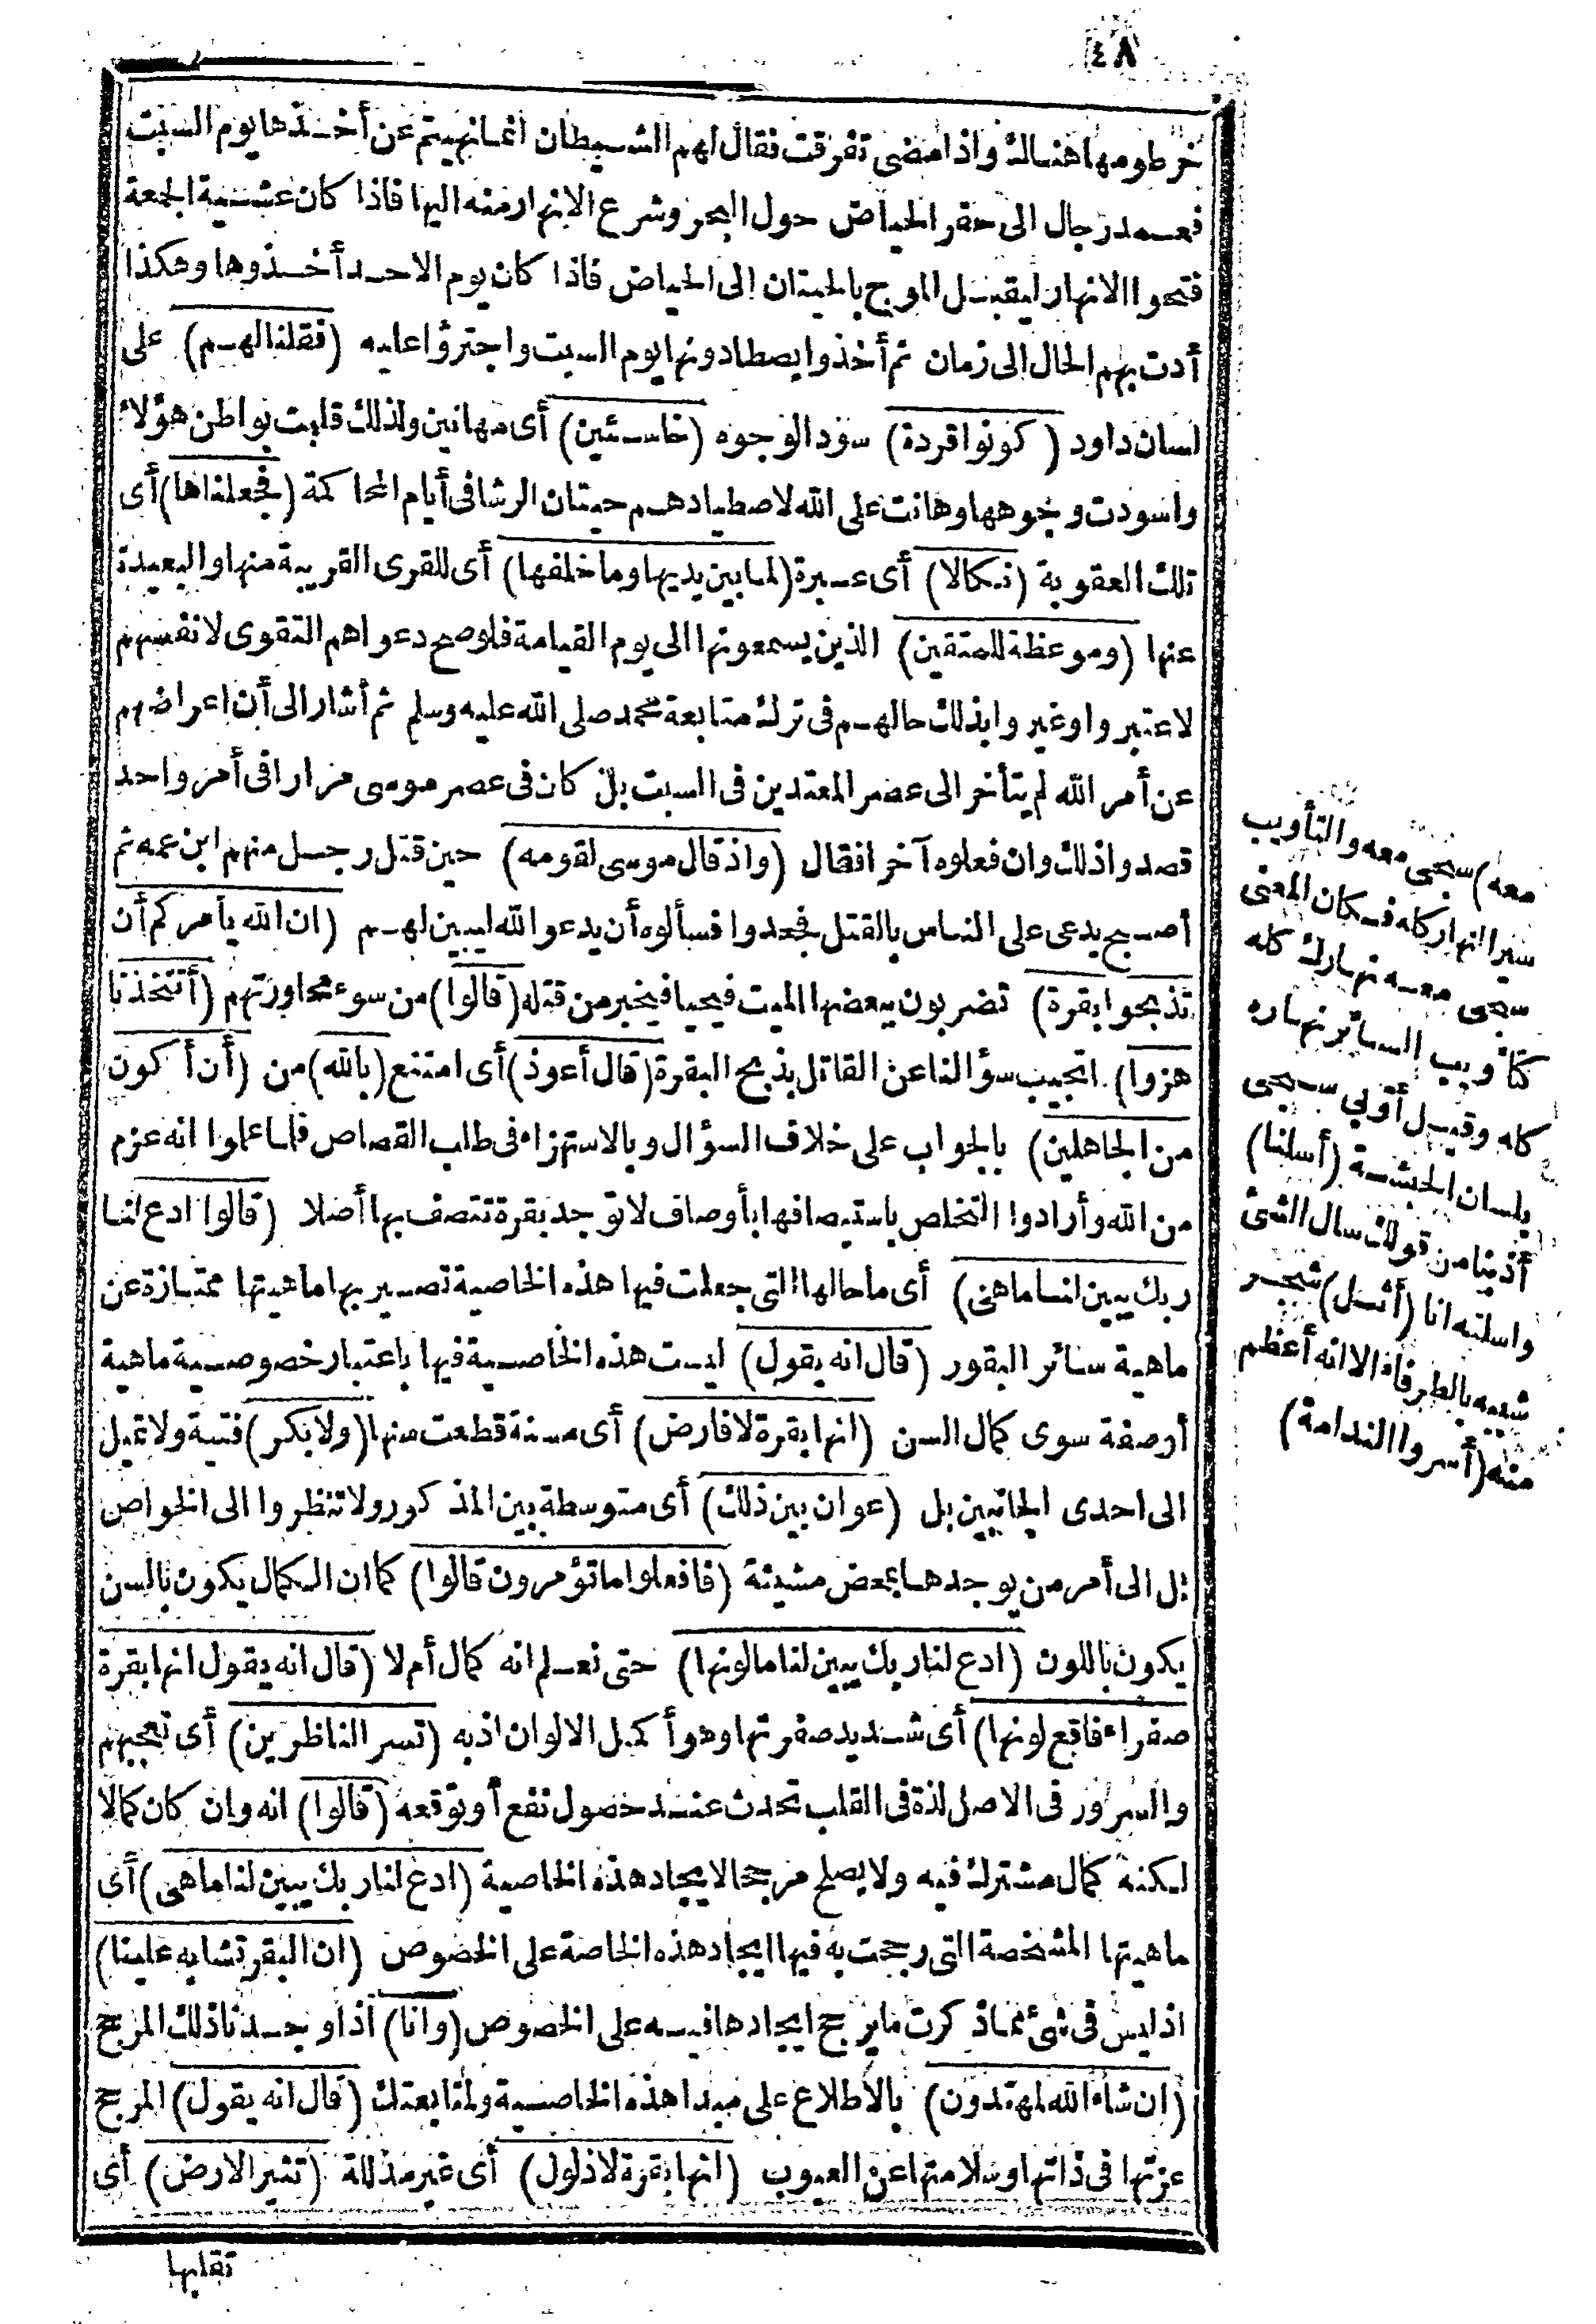 ٤٨
خرطومها هنالك واذا مضى تفرقت فقال لهم الشيطان انما نهيتم عن أخذها يوم السبت
فعمد رجال الى حفر الحياض حول البحر وشرع الانهار منه اليها فاذا كان عشية الجمعة
فتحوا الانهار ليقبل الموج بالحيتان الى الحياض فاذا كان يوم الاحد أخذوها وهكذا
أدت بهم الحال الى زمان ثم أخذوا يصطادونها يوم السبت واجترؤا عليه (فقلنا لهم) على
لسان داود (كونوا قردة) سود الوجوه (خاسئين) أى مهانين ولذلك قلبت بواطن هؤلاء
واسودت وجوهها وهانت على الله لاصطيادهم حيتان الرشا فى أيام المحاكمة (فجعلناها) أى
تلك العقوبة (نكالا) أى عبرة (لما بين يديها وما خلفها) أى للقرى القريبة منها والبعيدة
عنها (وموعظة للمتقين) الذين يسمعونها الى يوم القيامة فلو صح دعواهم التقوى لانفسهم
لاعتبروا وغيروا بذلك حالهم فى ترك متابعة محمد صلى الله عليه وسلم ثم أشار الى أن اعراضهم
عن أمر الله لم يتأخر الى عصر المعتدين فى السبت بل كان فى عصر موسى مرارا فى أمر واحد
قصدوا ذلك وان فعلوه آخرا فقال (واذ قال موسى لقومه) حين قتل رجل منهم ابن عمه ثم
أصبح يدعى على الناس بالقتل فجحدوا فسألوه أن يدعو الله ليبين لهم (ان الله يأمركم أن
تذبحوا بقرة) تضربون ببعضها الميت فيحيا فيخبر من قتله (قالوا) من سوء محاورتهم (أتتخذنا
هزوا) اتجيب سؤالنا عن القاتل بذبح البقرة (قال أعوذ) أى امتنع (بالله) من (أن أكون
من الجاهلين) بالجواب على خلاف السؤال وبالاستهزاء فى طلب القصاص فلما علموا انه عزم
من الله وأرادوا التخلص باستيصافها بأوصاف لا توجد بقرة تتصف بها أصلا (قالوا ادع لنا
ربك يبين لنا ما هى) أى ما حالها التى جعلت فيها هذه الخاصية تصير بها ماهيتها ممتازة عن
ماهية سائر البقور (قال انه يقول) ليست هذه الخاصية فيها باعتبار خصوصية ماهية
أو صفة سوى كمال السن (انها بقرة لا فارض) أى مسنة قطعت منها (ولا بكر) فتية ولا تميل
الى احدى الجانبين بل (عوان بين ذلك) أى متوسطة بين المذكور ولا تنظروا الى الخواص
بل الى أمر من يوجدها بمعض مشيئة (فافعلوا ما تؤمرون قالوا) كما ان الكمال يكون بالسن
يكون باللون (ادع لنا ربك يبين لنا ما لونها) حتى نعلم انه كمال أم لا (قال انه يقول انها بقرة
صفراء فاقع لونها) أى شديد صفرتها وهو أكمل الالوان اذ به (تسر الناظرين) أى تعجبهم
والسرور فى الاصل لذة فى القلب تحدث عند حصول نفع أو توقعه (قالوا) انه وان كان كمالا
لكنه كمال مشترك فيه ولا يصلح مرجحا لايجاد هذه الخاصية (ادع لنا ربك يبين لنا ما هى) أى
ماهيتها المشخصة التى رجحت به فيها ايجاد هذه الخاصة على الخصوص (ان البقر تشابه علينا)
اذ ليس فى شئ مما ذكرت ما يرجح ايجادها فيه على الخصوص (وانا) اذا وجدنا ذلك المرجح
(ان شاء الله لمهتدون) بالاطلاع على مبدا هذه الخاصية ولمتابعتك (قال انه يقول) المرجح
عزتها فى ذاتها وسلامتها عن العيوب (انها بقرة لا ذلول) أى غير مذللة (تثير الارض) أى
تقلبها
معه) سبحى معه والتأويب
سير النهار كله فكان المعنى
سبحى معه نهارك كله
كتأويب السائر نهاره
كله وقيل أوبى سبحى
بلسان الحبشة (أسلنا)
أذبنا من قولك سال الشئ
واسلته انا (أثل) شجر
شبيه بالطرفاء الا انه أعظم
منه (أسروا الندامة)